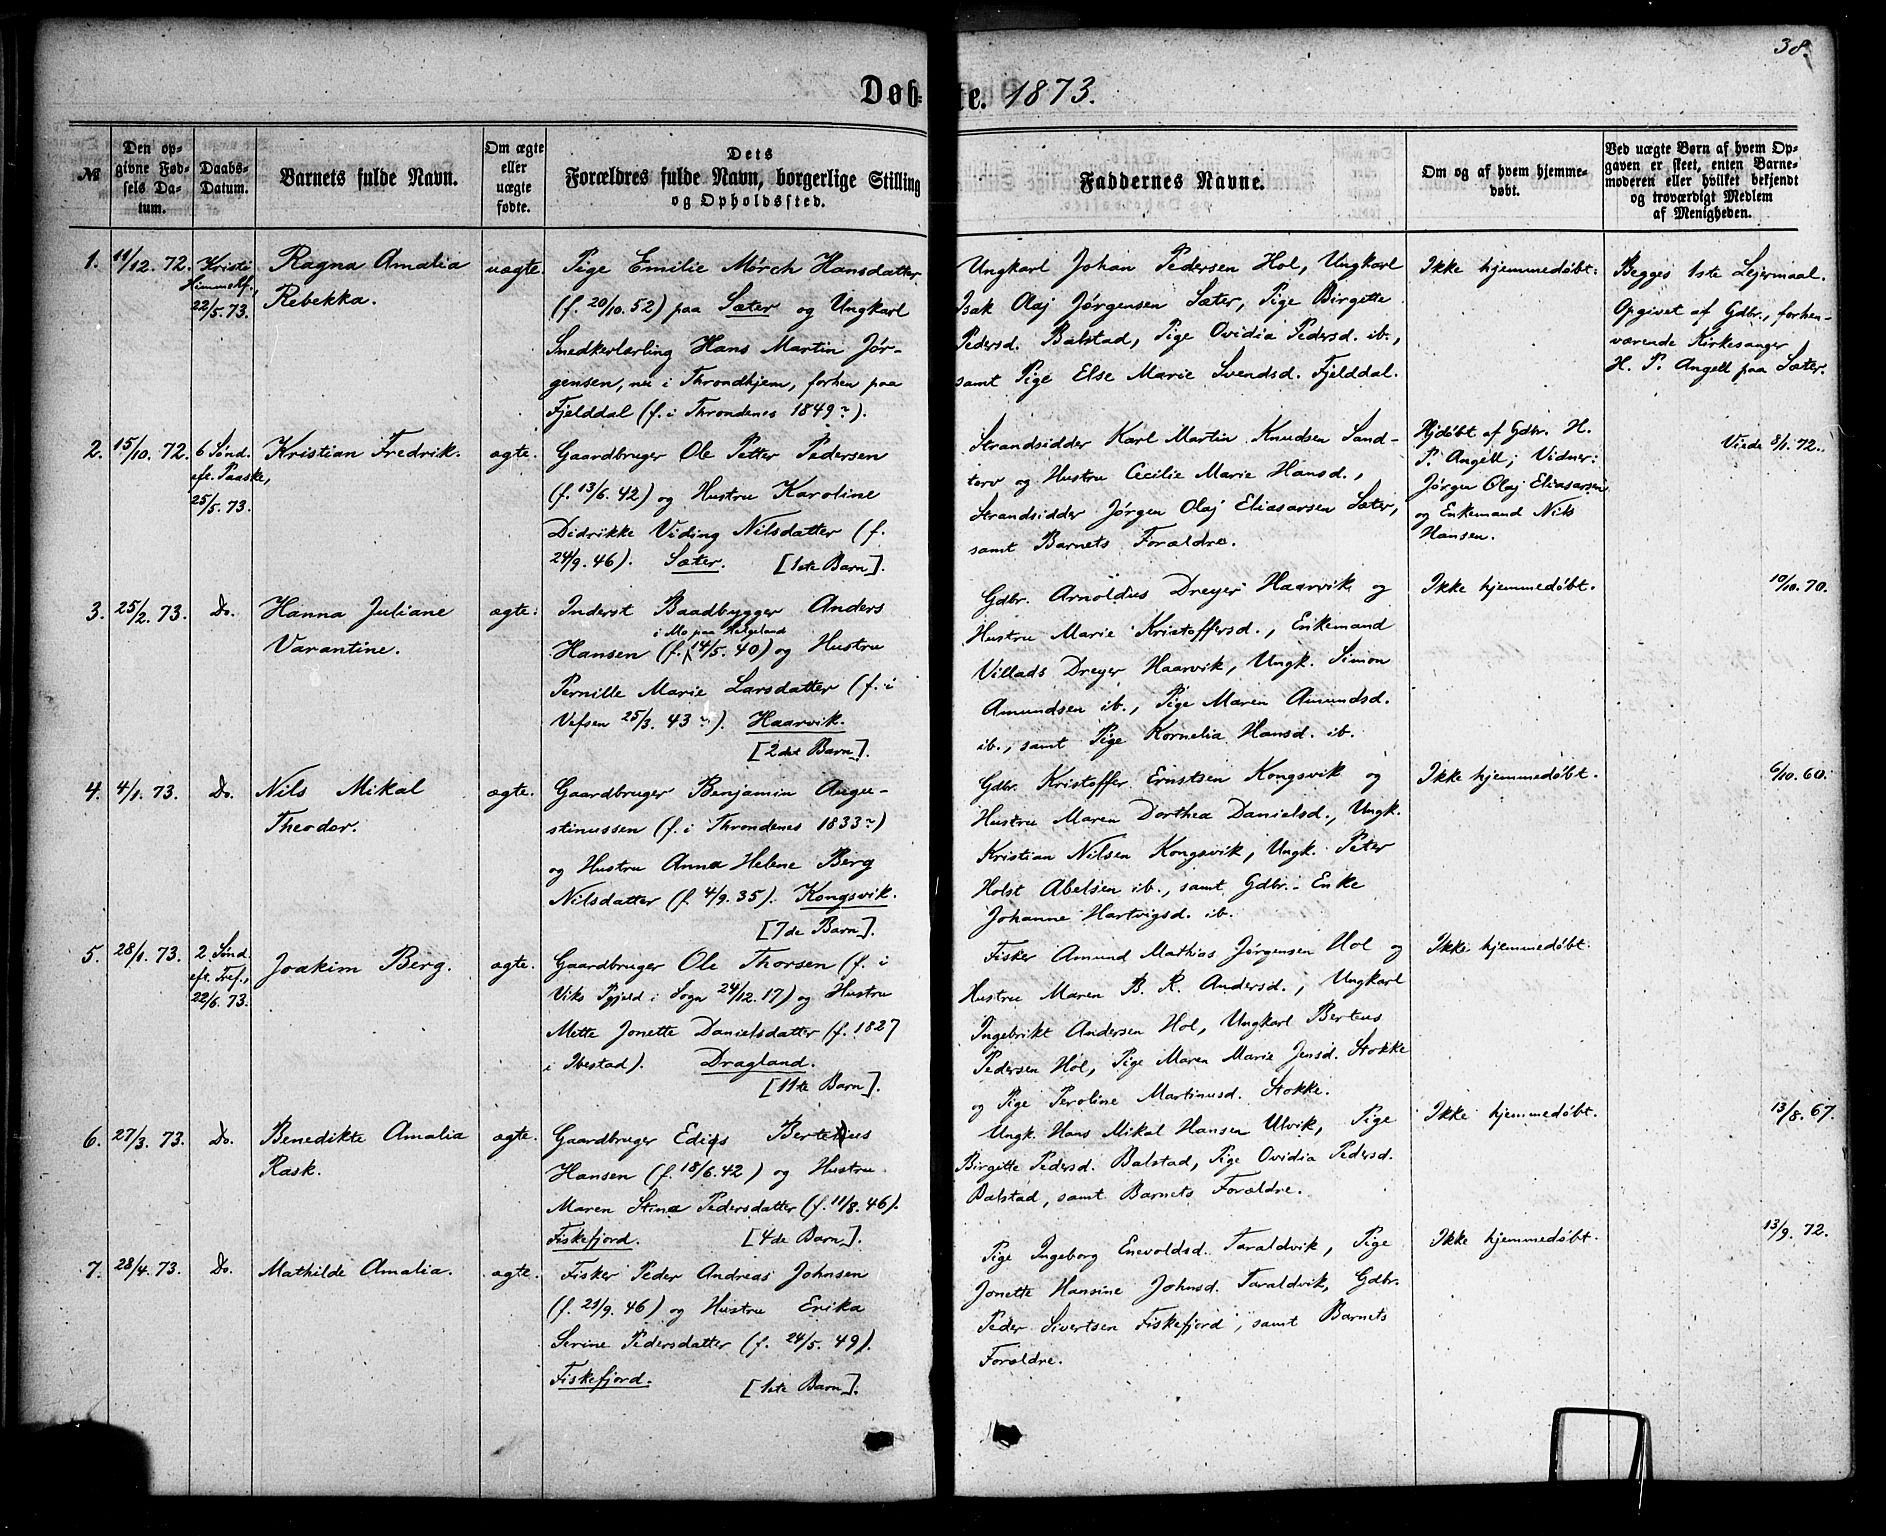 38.
Døbte. 1873.
№
Den opgivne Fødsels Datum.
Daabs-Datum.
Barnets fulde Navn.
Om ægte eller uægte fødte.
Dets Forældres fulde Navn, borgerlige Stilling og Opholdssted.
Faddernes Navne.
Om og af hvem hjemmedøbt.
Ved uægte Børn af hvem Opgaven er skeet, enten Barnemoderen eller hvilket bekjendt og troværdigt Medlem af Menigheden.
1. 11/12. 72.
Kristi Himmelf., 22/5. 73.
Ragna Amalia
Rebekka.
uægte.
Pige Emilie Mørch Hansdatter
(f. 20/10. 52) paa Sæter og Ungkarl
Snedkerlærling Hans Martin Jør-
gensen, nu i Throndhjem, forhen paa
Fjelddal (f. i Throndenes 1849~).
Ungkarl Johan Pedersen Hol, Ungkarl
Isak Olaj Jørgensen Sæter, Pige Birgitte
Pedersd. Balstad, Pige Ovidia Pedersd. ib.,
samt Pige Else Marie Svendsd. Fjelddal.
Ikke hjemmedøbt.
Begges 1ste Lejermaal.
Opgivet af Gdbr., forhen-
værende Kirkesanger
H. P. Angell paa Sæter.
2. 15/10. 72.
6 Sønd.
eft. Paaske,
25/5. 73.
Kristian Fredrik.
ægte.
Gaardbruger Ole Petter Pedersen
(f. 13/6. 42) og Hustru Karoline
Didrikke Viding Nilsdatter (f.
24/9. 46). Sæter. [1ste Barn].
Strandsidder Karl Martin Knudsen Sand-
torv og Hustru Cecilie Marie Hansd.,
Strandsidder Jørgen Olaj Eliasarsen Sæter,
samt Barnets Forældre.
Hjdøbt af Gdbr. H.
P. Angell; Vidner:
Jørgen Olaj Eliasarsen
og Enkemand Nils
Hansen.
Viede 8/1. 72.
3. 25/2. 73.
Do.
Hanna Juliane
Varantine.
ægte.
Inderst Baadbygger Anders
i Mo paa Helgeland
Hansen (f. 14/5. 40) og Hustru
Pernille Marie Larsdatter (f. i
Vefsen 25/3. 43~). Haarvik.
[2det Barn].
Gdbr. Arnoldus Dreyer Haarvik og
Hustru Marie Kristoffersd., Enkemand
Villads Dreyer Haarvik, Ungk. Simon
Amundsen ib., Pige Maren Amundsd.
ib., samt Pige Kornelia Hansd. ib.
Ikke hjemmedøbt.
10/10. 70.
4. 4/1. 73.
Do.
Nils Mikal
Theodor.
ægte.
Gaardbruger Benjamin Augu-
stinussen (f. i Throndenes 1833~)
og Hustru Anna Helene Berg
Nilsdatter (f. 4/9. 35). Kongsvik.
[7de Barn].
Gdbr. Kristoffer Ernstsen Kongsvik og
Hustru Maren Dorthea Danielsd., Ungk.
Kristian Nilsen Kongsvik, Ungk. Peter
Holst Abelsen ib., samt Gdbr.- Enke
Johanne Hartvigsd. ib.
Ikke hjemmedøbt.
6/10. 60.
5. 28/1. 73.
2 Sønd.
eft. Tref.,
22/6. 73.
Joakim Berg.
ægte.
Gaardbruger Ole Thorsen (f. i
Viks Pgjæld i Sogn 24/12. 17) og Hustru
Mette Jonette Danielsdatter (f. 1827
i Ibestad). Dragland.
[11te Barn].
Fisker Amund Mathias Jørgensen Hol og
Hustru Maren B. R. Andersd., Ungkarl
Ingebrikt Andersen Hol, Ungkarl Berteus
Pedersen Hol, Pige Maren Marie Jensd. Stokke
og Pige Peroline Martinusd. Stokke.
Ikke hjemmedøbt.
6. 27/3. 73.
Do.
Benedikte Amalia
Rask.
ægte.
Gaardbruger Berteus
Hansen (f. 18/6. 42) og Hustru
Maren Stina Pedersdatter (f. 11/8. 46).
Fiskefjord. [4de Barn].
Ungk. Hans Mikal Hansen Ulvik, Pige
Birgitte Pedersd. Balstad, Pige Ovidia Pedersd.
Balstad, samt Barnets Forældre.
Ikke hjemmedøbt.
13/8. 67.
7. 28/4. 73.
Do.
Mathilde Amalia.
ægte.
Fisker Peder Andreas Johnsen
(f. 23/9. 46) og Hustru Erika
Serine Pedersdatter (f. 24/5. 49).
Fiskefjord. [1ste Barn].
Pige Ingeborg Enevoldsd. Taraldvik, Pige
Jonette Hansine Johnsd. Taraldvik, Gdbr.
Peder Sivertsen Fiskefjord, samt Barnets
Forældre.
Ikke hjemmedøbt.
13/9. 72.